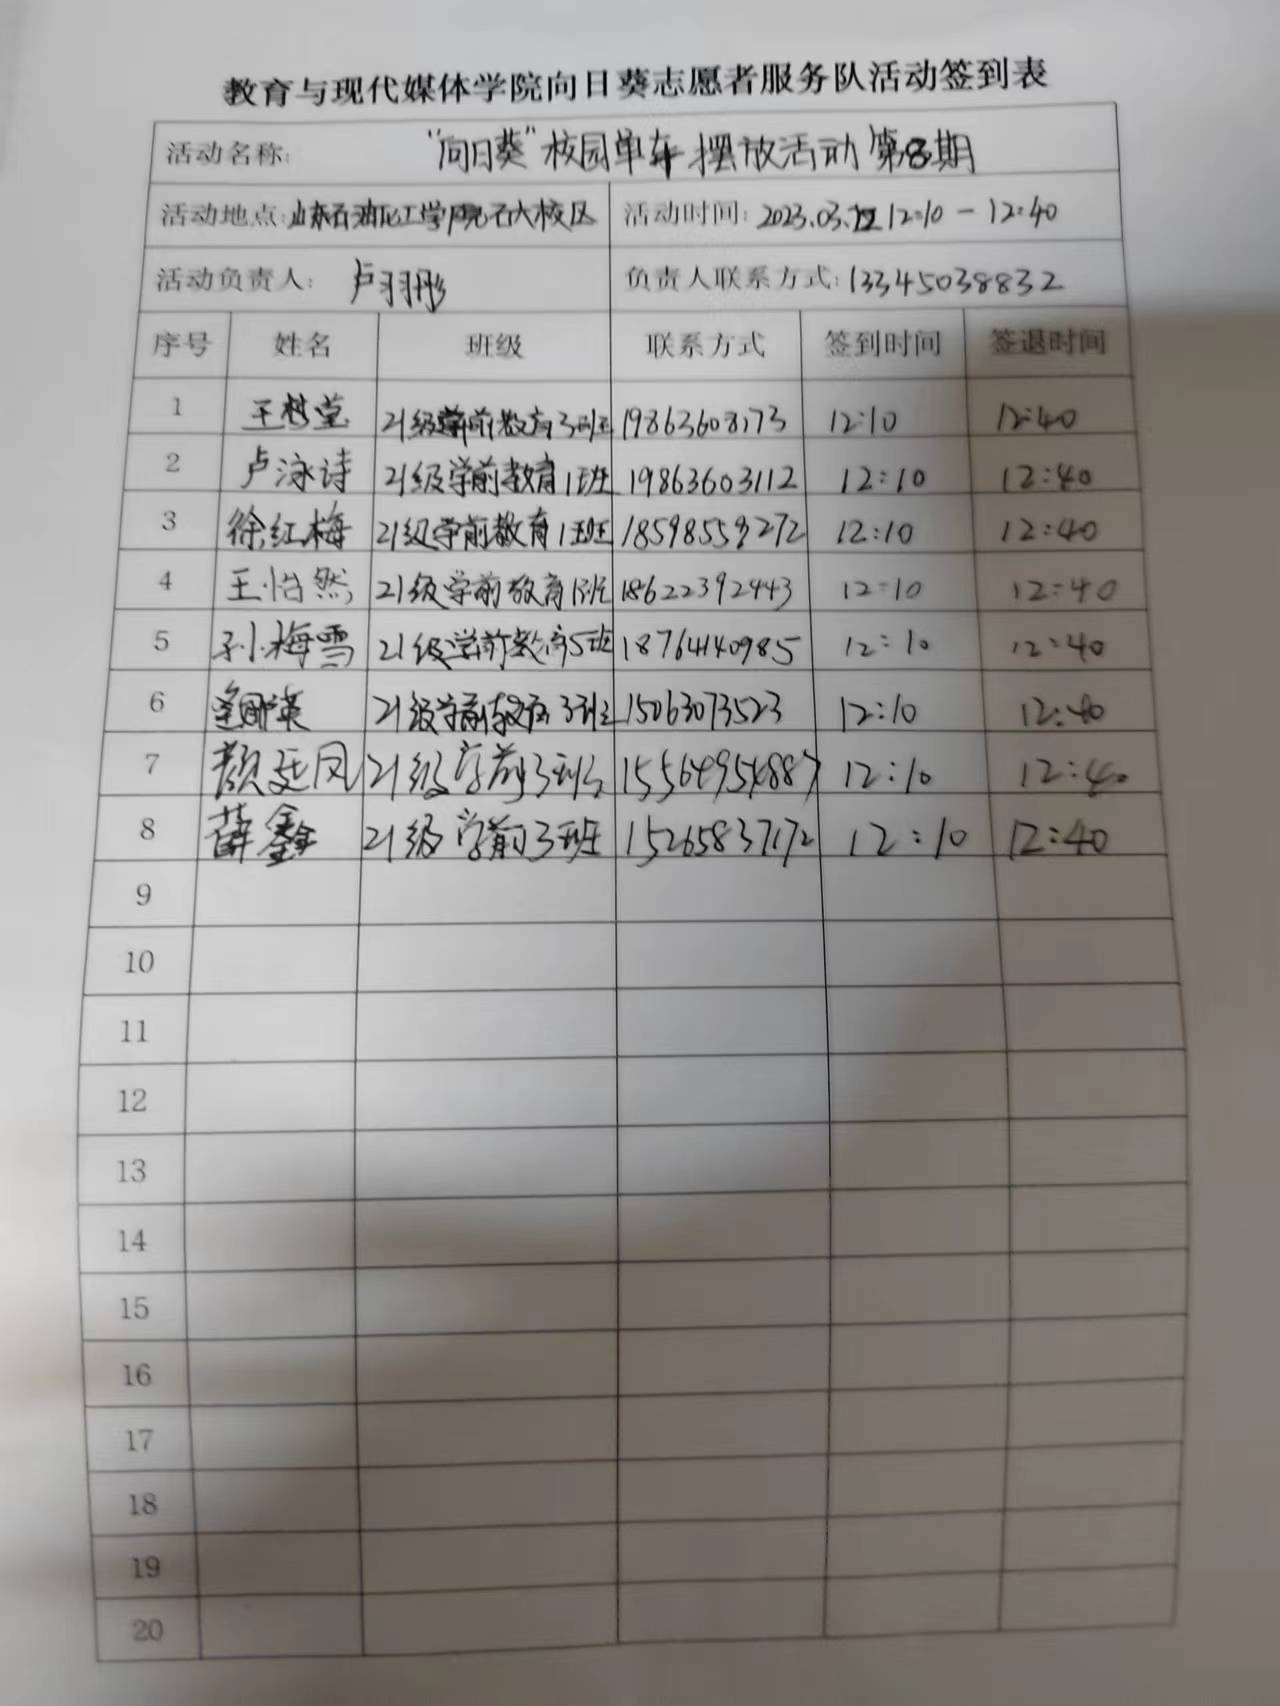 教育与现代媒体学院向日葵志愿者服务队活动签到表
活动名称: "向日葵"校园单车摆放活动第8期
活动地点:山东石油化工学院石大校区 活动时间: 2023.03. 12:10-12:40
活动负责人: 卢羽彤 负责人联系方式:13345038832
序号 姓名 班级 联系方式 签到时间 签退时间
1 王梦莹 21级学前教育3班 19863608173 12:10 12:40
2 卢泳诗 21级学前教育1班 19863603112 12:10 12:40
3 徐红梅 21级学前教育1班 18598559272 12:10 12:40
4 王怡然 21级学前教育1班 18622392443 12:10 12:40
5 孙梅雪 21级学前教育5班 18764140985 12:10 12:40
6 21级学前教育3班 15063073523 12:10 12:40
7 颜廷凤 21级学前3班 15564954887 12:10 12:40
8 薛鑫 21级学前3班 15265837172 12:10 12:40
9
10
11
12
13
14
15
16
17
18
19
20